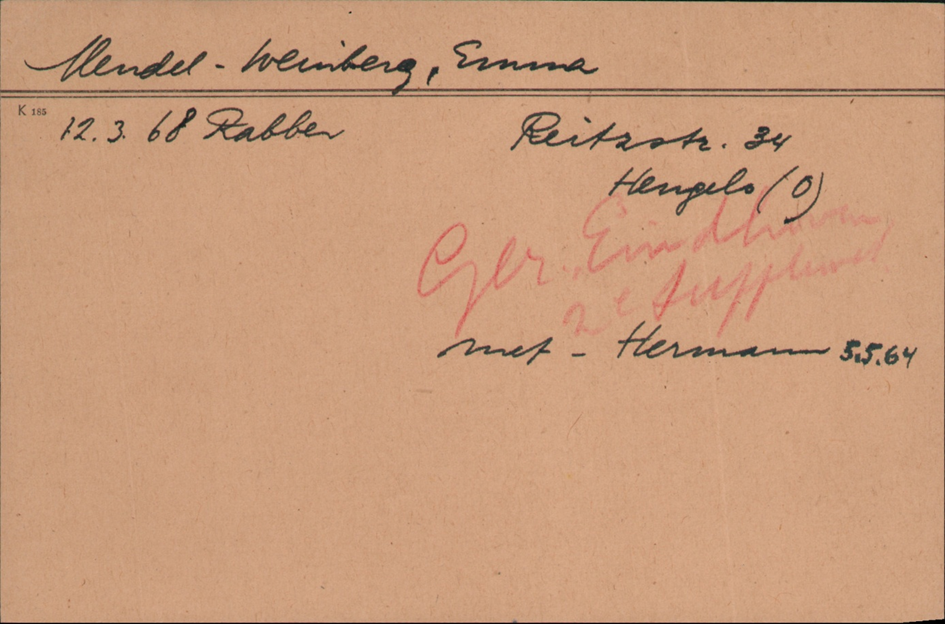 Mendel - Weinberg, Emma
K 185
12.3.68 Rabber
Reitzstr. 34
Hengelo (O)
Ger. Eindhoven
2e Supplement
met - Hermann 5.5.64